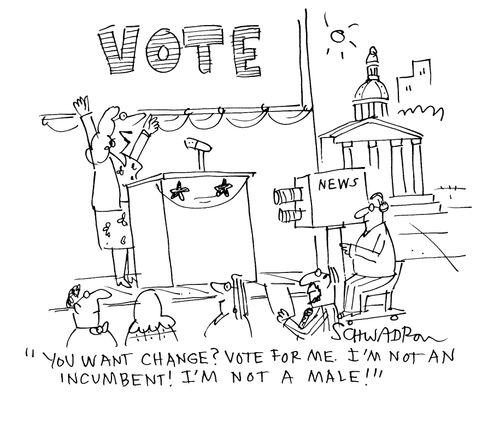 VOTE
NEWS
SCHWADRON
"YOU WANT CHANGE? VOTE FOR ME. I'M NOT AN
INCUMBENT! I'M NOT A MALE!"